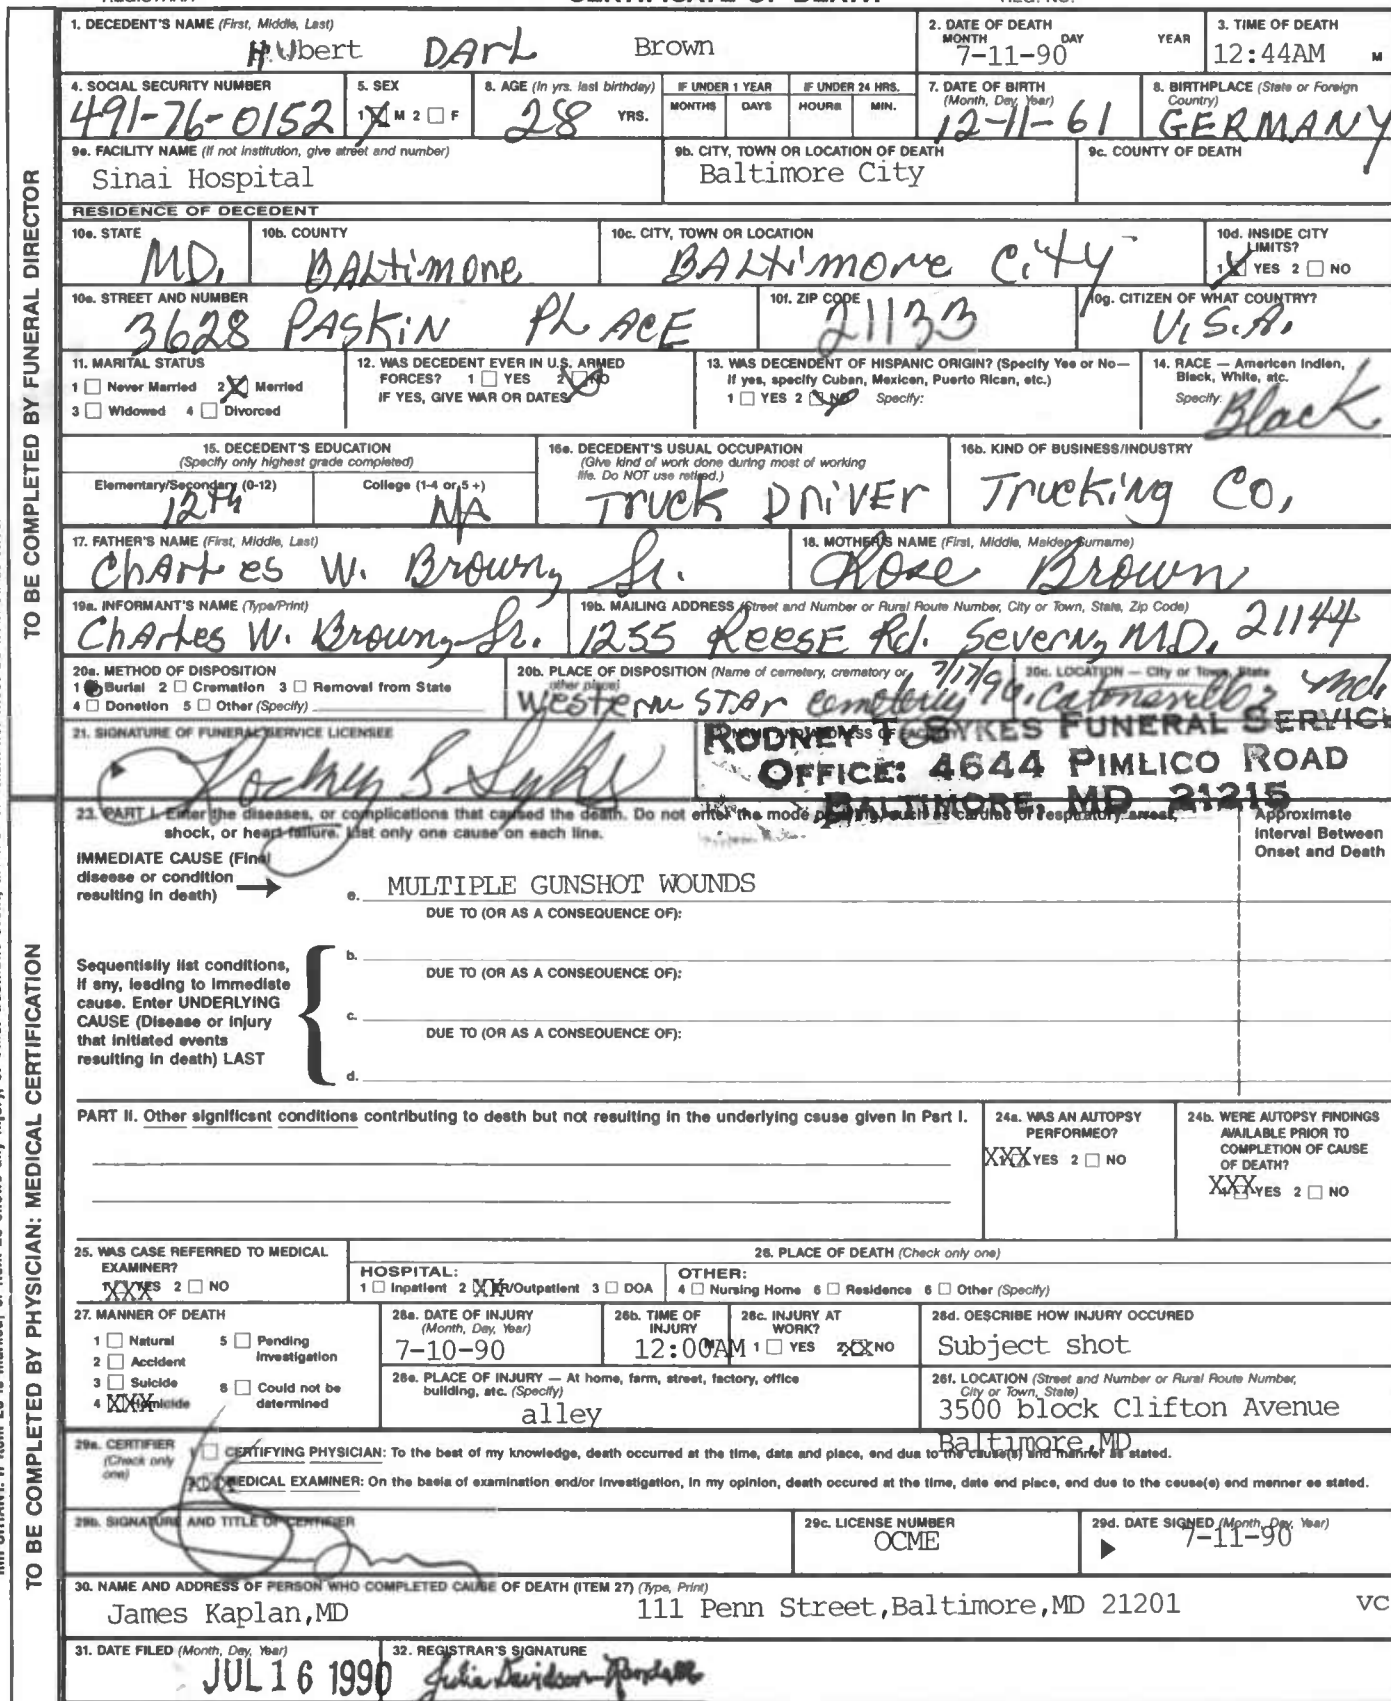 CERTIFICATE OF DEATH
1. DECEDENT'S NAME (First, Middle, Last)
Hubert DARL Brown
2. DATE OF DEATH
MONTH DAY YEAR
7-11-90
3. TIME OF DEATH
12:44AM M
4. SOCIAL SECURITY NUMBER
491-76-0152
5. SEX
1 X M 2 ☐ F
8. AGE (In yrs. last birthday)
28 YRS.
IF UNDER 1 YEAR
MONTHS DAYS
IF UNDER 24 HRS.
HOURS MIN.
7. DATE OF BIRTH
(Month, Day, Year)
12-11-61
8. BIRTHPLACE (State or Foreign
Country)
GERMANY
9a. FACILITY NAME (If not institution, give street and number)
Sinai Hospital
9b. CITY, TOWN OR LOCATION OF DEATH
Baltimore City
9c. COUNTY OF DEATH
RESIDENCE OF DECEDENT
10a. STATE
MD.
10b. COUNTY
BALtimore
10c. CITY, TOWN OR LOCATION
BALtimore City
10d. INSIDE CITY
LIMITS?
1 X YES 2 ☐ NO
10e. STREET AND NUMBER
3628 PASKIN PLACE
10f. ZIP CODE
21133
10g. CITIZEN OF WHAT COUNTRY?
U.S.A.
11. MARITAL STATUS
1 ☐ Never Married 2 X Married
3 ☐ Widowed 4 ☐ Divorced
12. WAS DECEDENT EVER IN U.S. ARMED
FORCES? 1 ☐ YES 2 X NO
IF YES, GIVE WAR OR DATES
13. WAS DECENDENT OF HISPANIC ORIGIN? (Specify Yes or No—
If yes, specify Cuban, Mexican, Puerto Rican, etc.)
1 ☐ YES 2 X NO Specify:
14. RACE — American Indian,
Black, White, etc.
Specify:
Black
15. DECEDENT'S EDUCATION
(Specify only highest grade completed)
Elementary/Secondary (0-12)
12th
College (1-4 or 5 +)
N/A
16a. DECEDENT'S USUAL OCCUPATION
(Give kind of work done during most of working
life. Do NOT use retired.)
TRUCK DRIVER
16b. KIND OF BUSINESS/INDUSTRY
Trucking Co.
17. FATHER'S NAME (First, Middle, Last)
Charles W. Brown, Sr.
18. MOTHER'S NAME (First, Middle, Maiden Surname)
Rose Brown
19a. INFORMANT'S NAME (Type/Print)
Charles W. Brown, Sr.
19b. MAILING ADDRESS (Street and Number or Rural Route Number, City or Town, State, Zip Code)
1255 Reese Rd. Severn, MD. 21144
20a. METHOD OF DISPOSITION
1 Burial 2 ☐ Cremation 3 ☐ Removal from State
4 ☐ Donation 5 ☐ Other (Specify)
20b. PLACE OF DISPOSITION (Name of cemetery, crematory or
other place)
7/17/90
Western STAR Cemetery
20c. LOCATION — City or Town, State
Catonsville, Md.
21. SIGNATURE OF FUNERAL SERVICE LICENSEE
Rodney S. Sykes
RODNEY T. SYKES FUNERAL SERVICE
OFFICE: 4644 PIMLICO ROAD
BALTIMORE, MD 21215
23. PART I. Enter the diseases, or complications that caused the death. Do not enter the mode of dying, such as cardiac or respiratory arrest,
shock, or heart failure. List only one cause on each line.
Approximate
Interval Between
Onset and Death
IMMEDIATE CAUSE (Final
disease or condition
resulting in death)
a. MULTIPLE GUNSHOT WOUNDS
DUE TO (OR AS A CONSEQUENCE OF):
Sequentially list conditions,
if any, leading to immediate
cause. Enter UNDERLYING
CAUSE (Disease or injury
that initiated events
resulting in death) LAST
b.
DUE TO (OR AS A CONSEQUENCE OF):
c.
DUE TO (OR AS A CONSEQUENCE OF):
d.
PART II. Other significant conditions contributing to death but not resulting in the underlying cause given in Part I.
24a. WAS AN AUTOPSY
PERFORMED?
XXX YES 2 ☐ NO
24b. WERE AUTOPSY FINDINGS
AVAILABLE PRIOR TO
COMPLETION OF CAUSE
OF DEATH?
XXX YES 2 ☐ NO
25. WAS CASE REFERRED TO MEDICAL
EXAMINER?
XXX YES 2 ☐ NO
26. PLACE OF DEATH (Check only one)
HOSPITAL:
1 ☐ Inpatient 2 XX ER/Outpatient 3 ☐ DOA
OTHER:
4 ☐ Nursing Home 5 ☐ Residence 6 ☐ Other (Specify)
27. MANNER OF DEATH
1 ☐ Natural 5 ☐ Pending
Investigation
2 ☐ Accident
3 ☐ Suicide 6 ☐ Could not be
determined
4 XXX Homicide
28a. DATE OF INJURY
(Month, Day, Year)
7-10-90
28b. TIME OF
INJURY
12:00AM
28c. INJURY AT
WORK?
1 ☐ YES 2 XX NO
28d. DESCRIBE HOW INJURY OCCURED
Subject shot
28e. PLACE OF INJURY — At home, farm, street, factory, office
building, etc. (Specify)
alley
28f. LOCATION (Street and Number or Rural Route Number,
City or Town, State)
3500 block Clifton Avenue
Baltimore,MD
29a. CERTIFIER
(Check only
one)
1 ☐ CERTIFYING PHYSICIAN: To the best of my knowledge, death occurred at the time, date and place, and due to the cause(s) and manner as stated.
XXX MEDICAL EXAMINER: On the basis of examination and/or investigation, in my opinion, death occured at the time, date and place, and due to the cause(s) and manner as stated.
29b. SIGNATURE AND TITLE OF CERTIFIER
29c. LICENSE NUMBER
OCME
29d. DATE SIGNED (Month, Day, Year)
7-11-90
30. NAME AND ADDRESS OF PERSON WHO COMPLETED CAUSE OF DEATH (ITEM 27) (Type, Print)
James Kaplan,MD 111 Penn Street,Baltimore,MD 21201 VC
31. DATE FILED (Month, Day, Year)
JUL 16 1990
32. REGISTRAR'S SIGNATURE
Julia Davidson-Randall
TO BE COMPLETED BY FUNERAL DIRECTOR
TO BE COMPLETED BY PHYSICIAN: MEDICAL CERTIFICATION